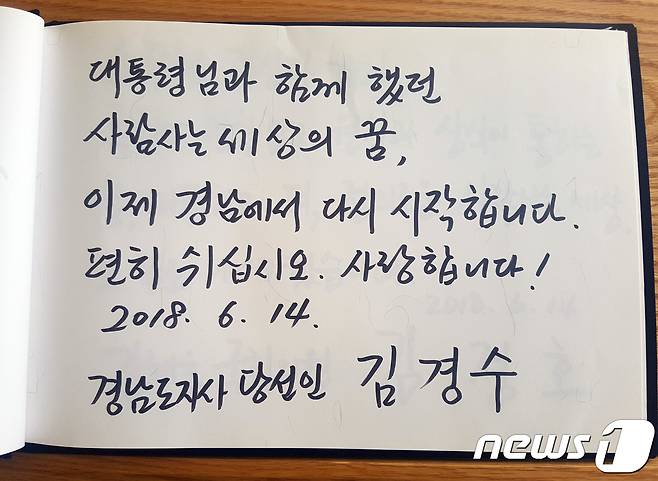 대통령님과 함께 했던
사람사는 세상의 꿈,
이제 경남에서 다시 시작합니다.
편히 쉬십시오. 사랑합니다!
2018. 6. 14.
경남도지사 당선인 김경수
news1